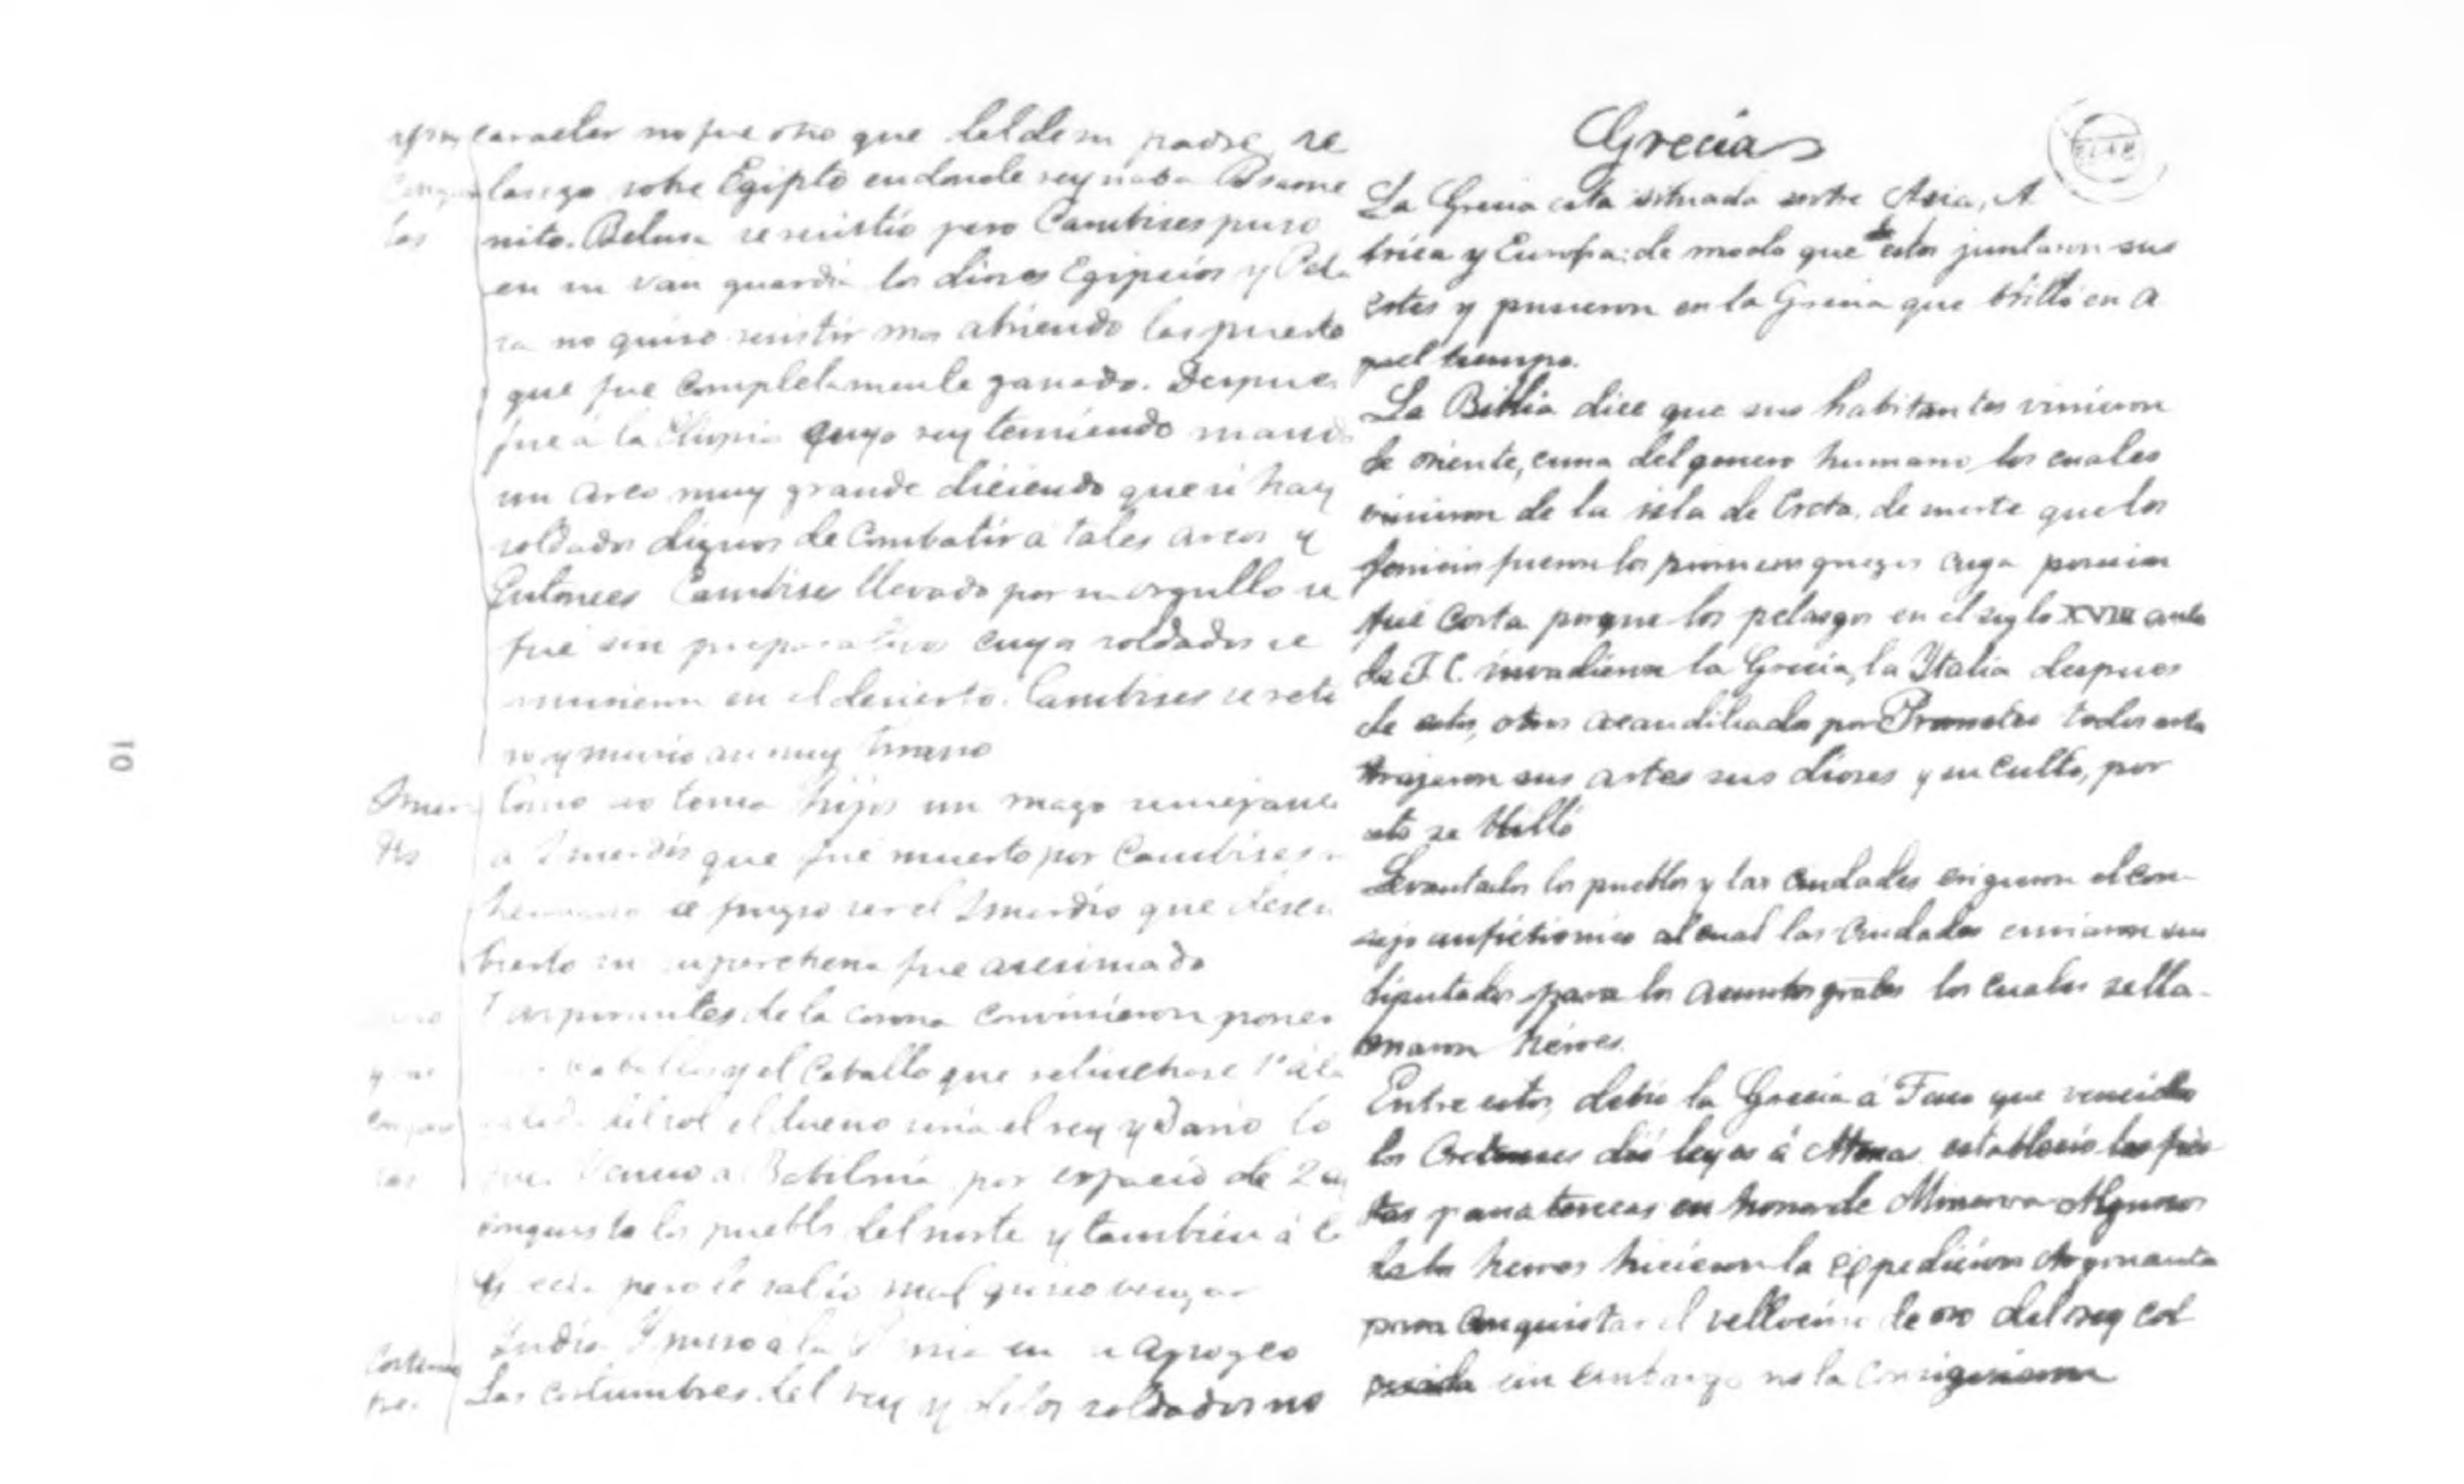 caracter no fue otro que del de su padre, se
lanzo sobre Egipto en donde reynaba Psame
nito. Pelusa se resistio pero Cambises puso
en su van guardia los dioses Egipcios y Pelu
sa no quiso resistir mas abriendo las puerta
que fue completamente ganado. Despues
fue a la Etiopia cuyo rey temiendo mando
un arco muy grande diciendo que si hay
soldados dignos de combatir a tales arcos y
Entonces Cambises llevado por su orgullo se
fue sin preparativos cuyos soldados se
murieron en el decierto. Cambises se reti
ro y murio muy tirano
Smer
dis
Como no tenia hijos un mago semejante
a Smerdis que fue muerto por Cambises
hermano se fingio ser el Smerdis que descu
bierto su supercheria fue asesinado
7 aspirantes de la corona convinieron poner
caballos y el caballo que relinchase 1º a la
salida del sol el dueno seria el rey y Dario lo
fue. Vencio a Babilonia por espacio de 2 a
conquisto los pueblos del norte y tambien á la
pero le salio mal quiso vengar
India. Y puso a la Persia en su apogeo
Costum
bres
Las costumbres del rey y de los soldados no
Grecia
La Grecia esta situada entre Asia, A
frica y Europa: de modo que estos juntaron sus
artes y pusieron en la Grecia que brilló en a
quel tiempo.
La Biblia dice que sus habitantes vinieron
de oriente, cuna del genero humano los cuales
vinieron de la isla de Creta, de suerte que los
fenicios fueron los primeros griegos cuya posicion
fué corta porque los pelasgos en el siglo XVIII antes
de J.C. invadieron la Grecia, la Ytalia despues
de estos, otros acaudillados por Prometeo todos estos
trajeron sus artes sus dioses y su culto, por
esto se brilló
Levantados los pueblos y las ciudades erigieron el con-
sejo anfictionico al cual las ciudades enviaron sus
diputados para los asuntos grales los cuales se lla-
maron héroes.
Entre estos, debió la Grecia á Teseo que vencidos
los Cretenses dió leyes á Atenas, establecio las fies
tas panateneas en honor de Minerva Algunos
de los heroes hicieron la expedicion Argonauta
para conquistar el vellocino de oro del rey Col
sin embargo no la consiguieron